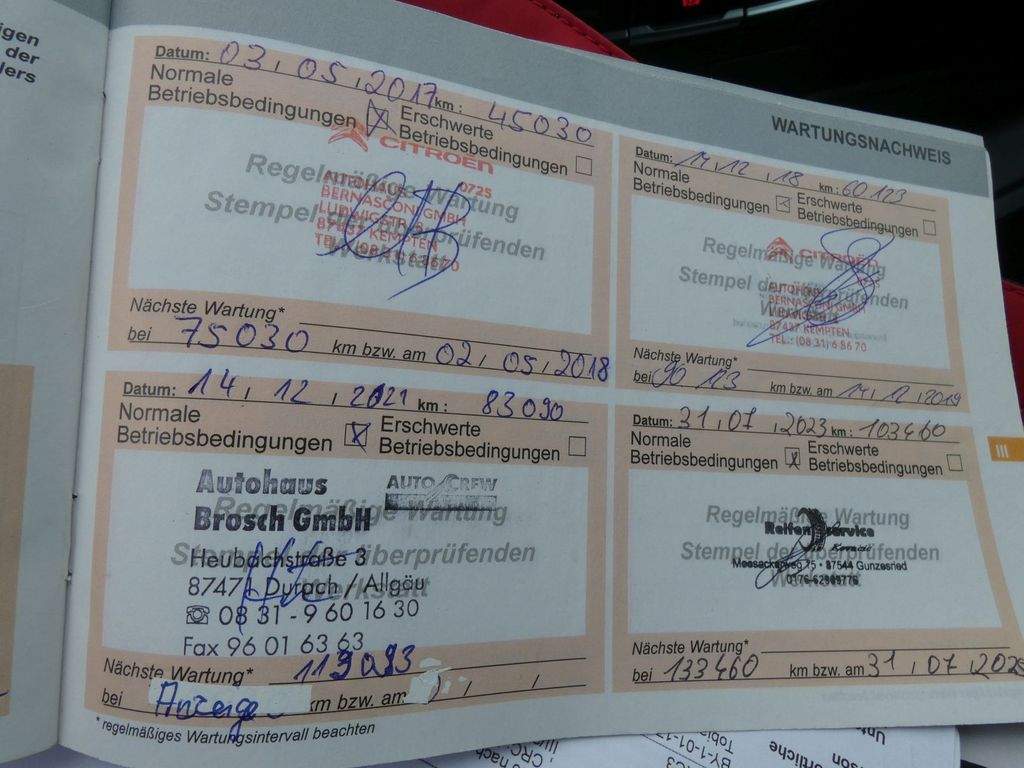 igen
der
lers
WARTUNGSNACHWEIS
Datum: 03.05.2017 km: 45030
Normale
Betriebsbedingungen
Erschwerte
Betriebsbedingungen
CITROËN
Regelmäßige Wartung
Stempel der überprüfenden
Werkstatt
AUTOHAUS 0725
BERNASCONI GMBH
LUDWIGSTR.
87437 KEMPTEN
TEL.: (0831) 6 86 70
Nächste Wartung*
bei 75030 km bzw. am 02.05.2018
Datum: 14.12.18 km: 60123
Normale
Betriebsbedingungen
Erschwerte
Betriebsbedingungen
CITROËN
Regelmäßige Wartung
Stempel der überprüfenden
Werkstatt
AUTOHAUS
BERNASCONI GMBH
87437 KEMPTEN
TEL.: (08 31) 6 86 70
Nächste Wartung*
bei km bzw. am 14.12.2019
Datum: 14.12.2021 km: 83090
Normale
Betriebsbedingungen
Erschwerte
Betriebsbedingungen
Autohaus AUTO CREW
Brosch GmbH
Regelmäßige Wartung
Stempel der überprüfenden
Werkstatt
Heubachstraße 3
87471 Durach / Allgäu
☏ 08 31 - 9 60 16 30
Fax 96 01 63 63
Nächste Wartung* 113093
bei Anzeige km bzw. am:
* regelmäßiges Wartungsintervall beachten
Datum: 31.07.2023 km: 103460
Normale
Betriebsbedingungen
Erschwerte
Betriebsbedingungen
Regelmäßige Wartung
Reifenservice
Stempel der überprüfenden
Werkstatt
87544 Gunzesried
Nächste Wartung*
bei 133460 km bzw. am 31.07.202
III